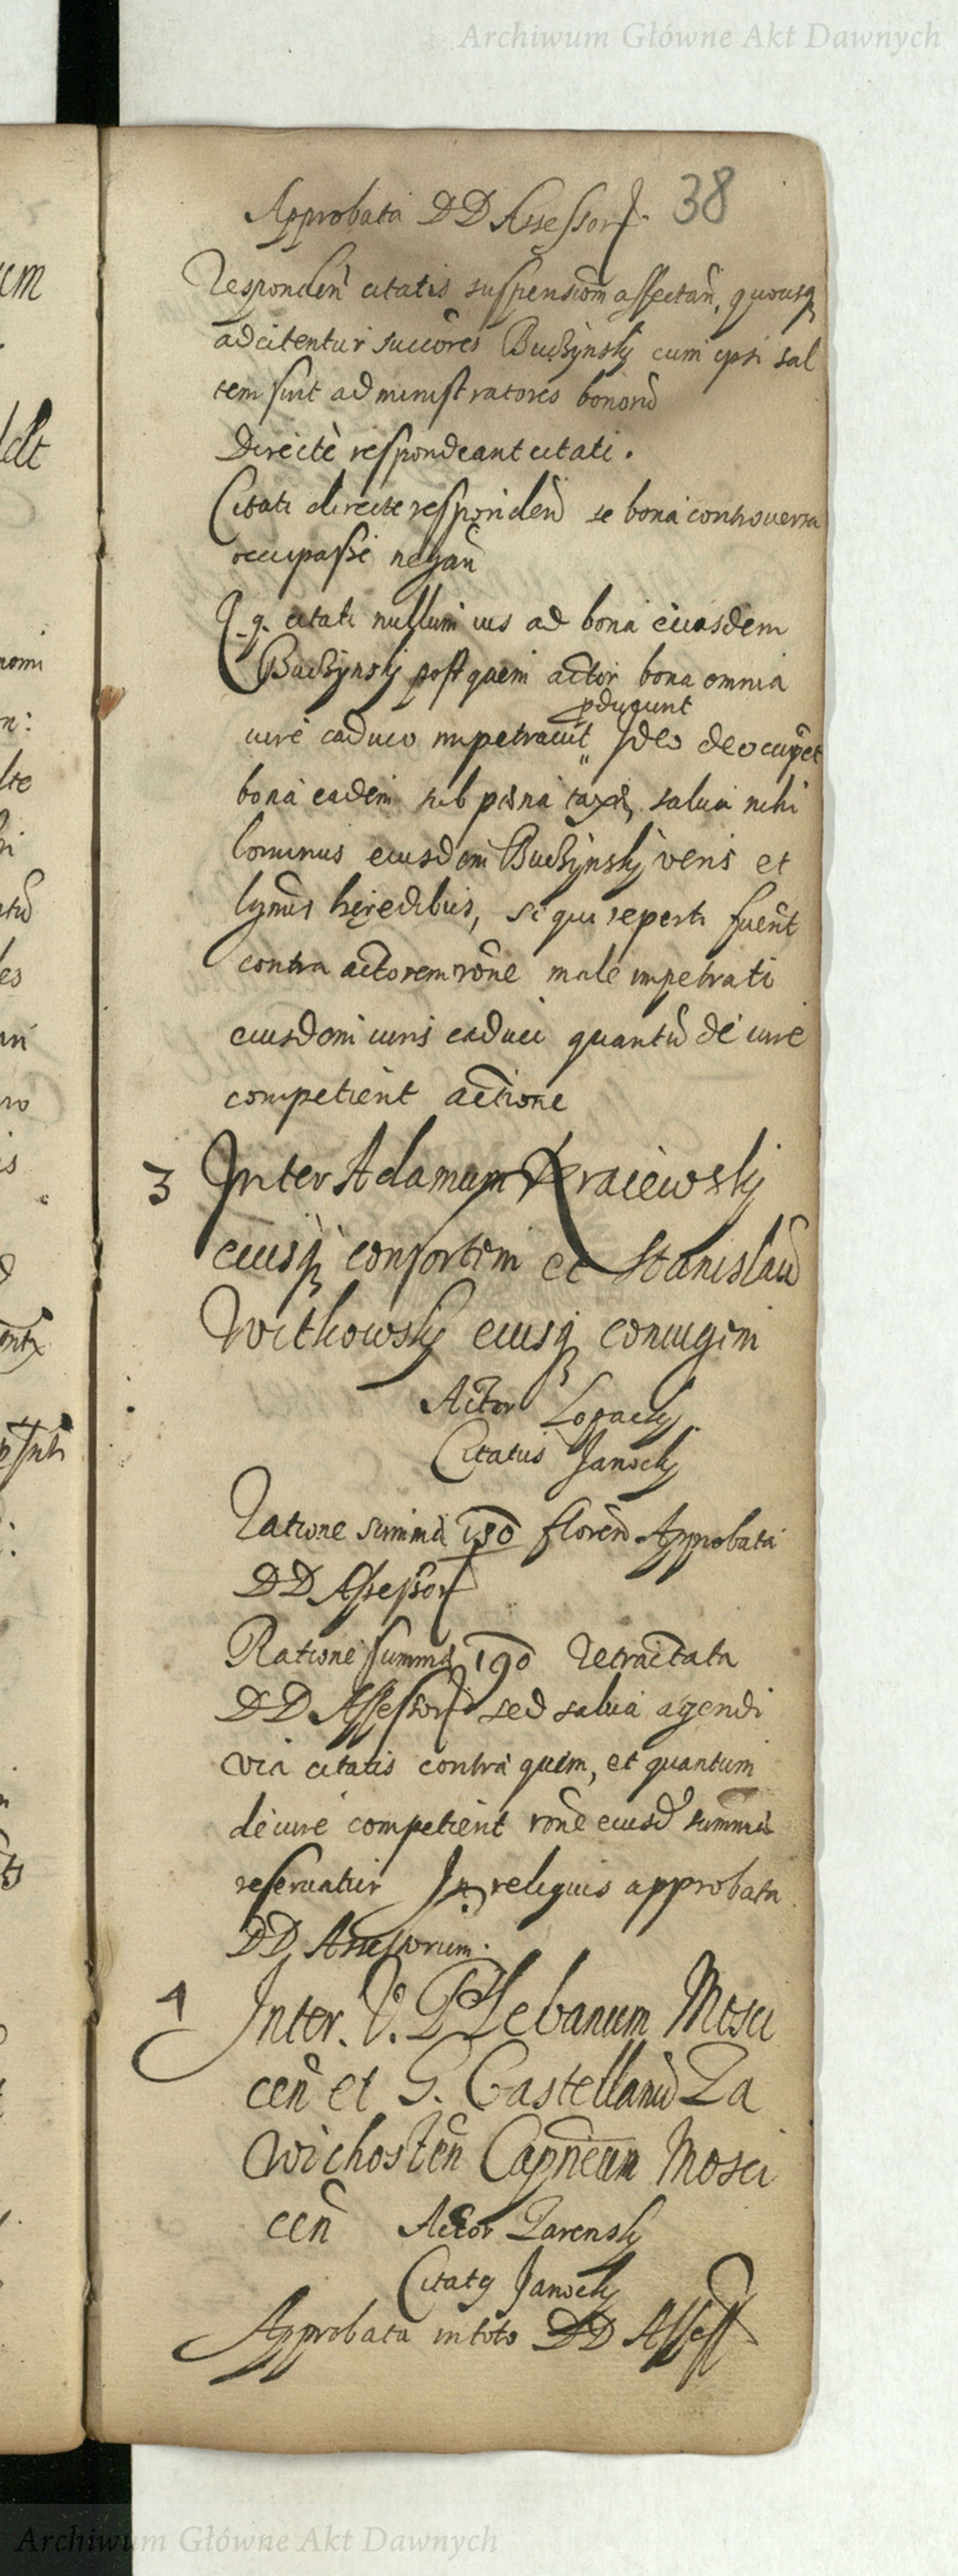 Archiwum Główne Akt Dawnych
38
Approbata DD Assessor
Responden citatis suspensiom affectan, quousq
adcitentur succōres Buczynsky cum ipsi sal
tem sint administratores bonorū
Directè respondeant citati.
Citati directe responden se bona controversa
occupasse negan
citati nullum ius ad bona eiusdem
Buczynsky postquem actor bona omnia
pducunt
iure caduco impetravit Ideo deocupet
bona eadem sub pœna taxæ, salva nihi
lominus eiusdem Buczynsky veris et
lgmis hęredibus, si qui reperti fuerit
contra actorem rōne male impetrati
eiusdem iuris caduci quantū de iure
competient actione
3 Inter Adamum Kraiewsky
eiusq consortem et Stanislaū
Witkowsky eiusq coniugem
Actor Lopacky
Citatus Janocky
Ratione summæ 150 floren Approbata
DD Assessor
Ratione summæ 190 Retractata
DD Assessor sed salva agendi
via citatis contra quem, et quantum
de iure competient rōne eiusd summæ
reservatur In reliquis approbata
DD Assessorum.
4 Inter V. Plebanum Mosci
cen et G. Castellanū Za
wichosten Capneum Mosci
cen Actor Zarensky
Citatq Janocky
Approbata in toto DD Assess
Archiwum Główne Akt Dawnych